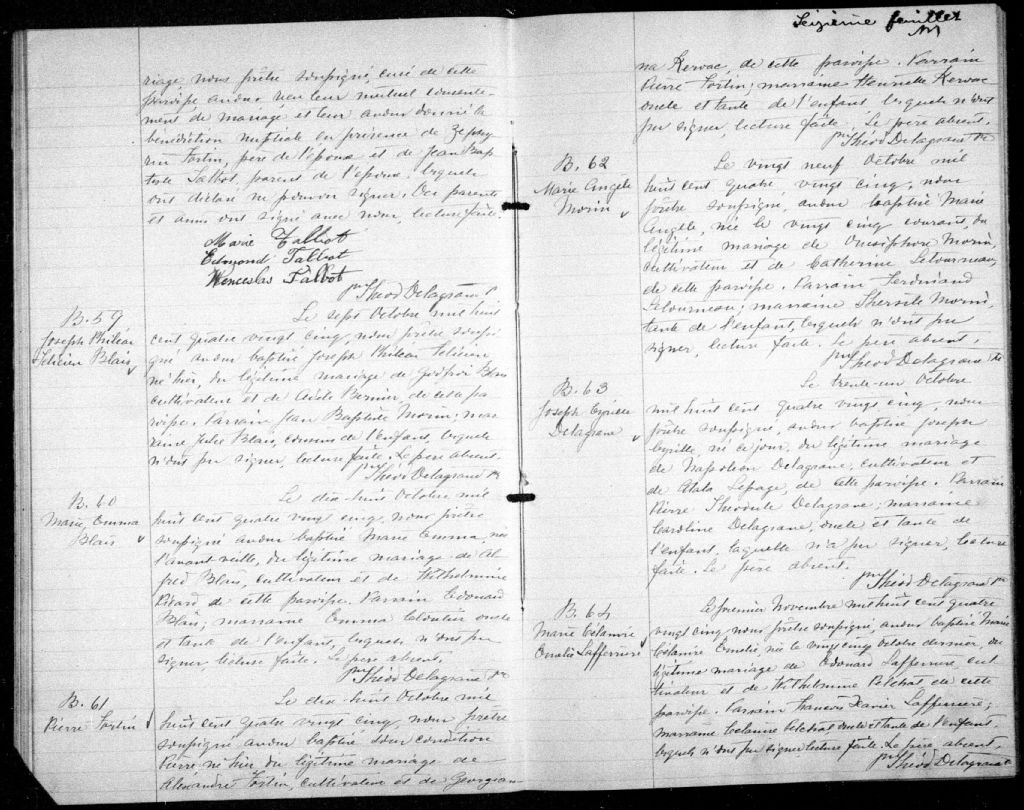 riage nous prêtre soussigné, curé de cette
paroisse avons reçu leur mutuel consente-
ment de mariage et leur avons donné la
bénédiction nuptiale en présence de Zephy-
rin Fortin, père de l'époux et de Jean Bap
tiste Talbot, parent de l'épouse, lesquels
ont déclaré ne pouvoir signer. Des parents
et amis ont signé avec nous, lecture faite.
Marie Talbot
Edmond Talbot
Wenceslas Talbot
Théod Delagrave Ptre
B. 59
Joseph Philéas
Félicien Blais
Le sept Octobre mil huit
cent quatre vingt cinq, nous prêtre soussi-
gné avons baptisé Joseph Philéas Félicien
né hier, du légitime mariage de Godfroi Blais
cultivateur et de Bernier, de cette pa
roisse. Parrain Jean Baptiste Morin; mar
raine Blais, cousins de l'enfant, lesquels
n'ont pu signer, lecture faite. Le père absent.
Théod Delagrave Ptre
B. 60
Marie Emma
Blais
Le dix-huit Octobre mil
huit cent quatre vingt cinq, nous prêtre
soussigné avons baptisé Marie Emma, née
l'avant veille, du légitime mariage de Al
fred Blais, cultivateur et de Wilhelmine
Picard de cette paroisse. Parrain Edouard
Blais; marraine Emma Cloutier oncle
et tante de l'enfant, lesquels n'ont pu
signer, lecture faite. Le père absent.
Théod Delagrave Ptre
B. 61
Pierre Fortin
Le dix-huit Octobre mil
huit cent quatre vingt cinq, nous prêtre
soussigné avons baptisé sous condition
Pierre né hier du légitime mariage de
Alexandre Fortin, cultivateur et de Georgian-
Seizième feuillet
na Kervac, de cette paroisse. Parrain
Pierre Fortin; marraine Henriette Kervac
oncle et tante de l'enfant lesquels n'ont
pu signer, lecture faite. Le père absent.
Théod Delagrave Ptre
B. 62
Marie Angèle
Morin
Le vingt neuf Octobre mil
huit cent quatre vingt cinq, nous
prêtre soussigné, avons baptisé Marie
Angèle, née le vingt cinq courant, du
légitime mariage de Onésiphore Morin,
cultivateur et de Catherine Létourneau,
de cette paroisse. Parrain Ferdinand
Létourneau; marraine Morin,
tante de l'enfant, lesquels n'ont pu
signer, lecture faite. Le père absent.
Théod Delagrave Ptre
B. 63
Joseph Cyrille
Delagrave
Le trente-un Octobre
mil huit cent quatre vingt cinq, nous
prêtre soussigné, avons baptisé Joseph
Cyrille, né ce jour, du légitime mariage
de Napoléon Delagrave, cultivateur et
de Atala Lepage, de cette paroisse. Parrain
Pierre Théodule Delagrave; marraine
Caroline Delagrave, oncle et tante de
l'enfant, laquelle n'a pu signer, lecture
faite. Le père absent.
Théod Delagrave Ptre
B. 64
Marie Célanire
Emélie Lafferrière
Le premier Novembre mil huit cent quatre
vingt cinq, nous prêtre soussigné, avons baptisé Marie
Célanire Emélie née le vingt cinq octobre dernier, du
légitime mariage de Edouard Lafferrière, cul
tivateur et de Wilhelmine de cette
paroisse. Parrain Francois Xavier Lafferrière;
marraine Célanire oncle et tante de l'enfant,
lesquels n'ont pu signer lecture faite. Le père absent.
Théod Delagrave Ptre